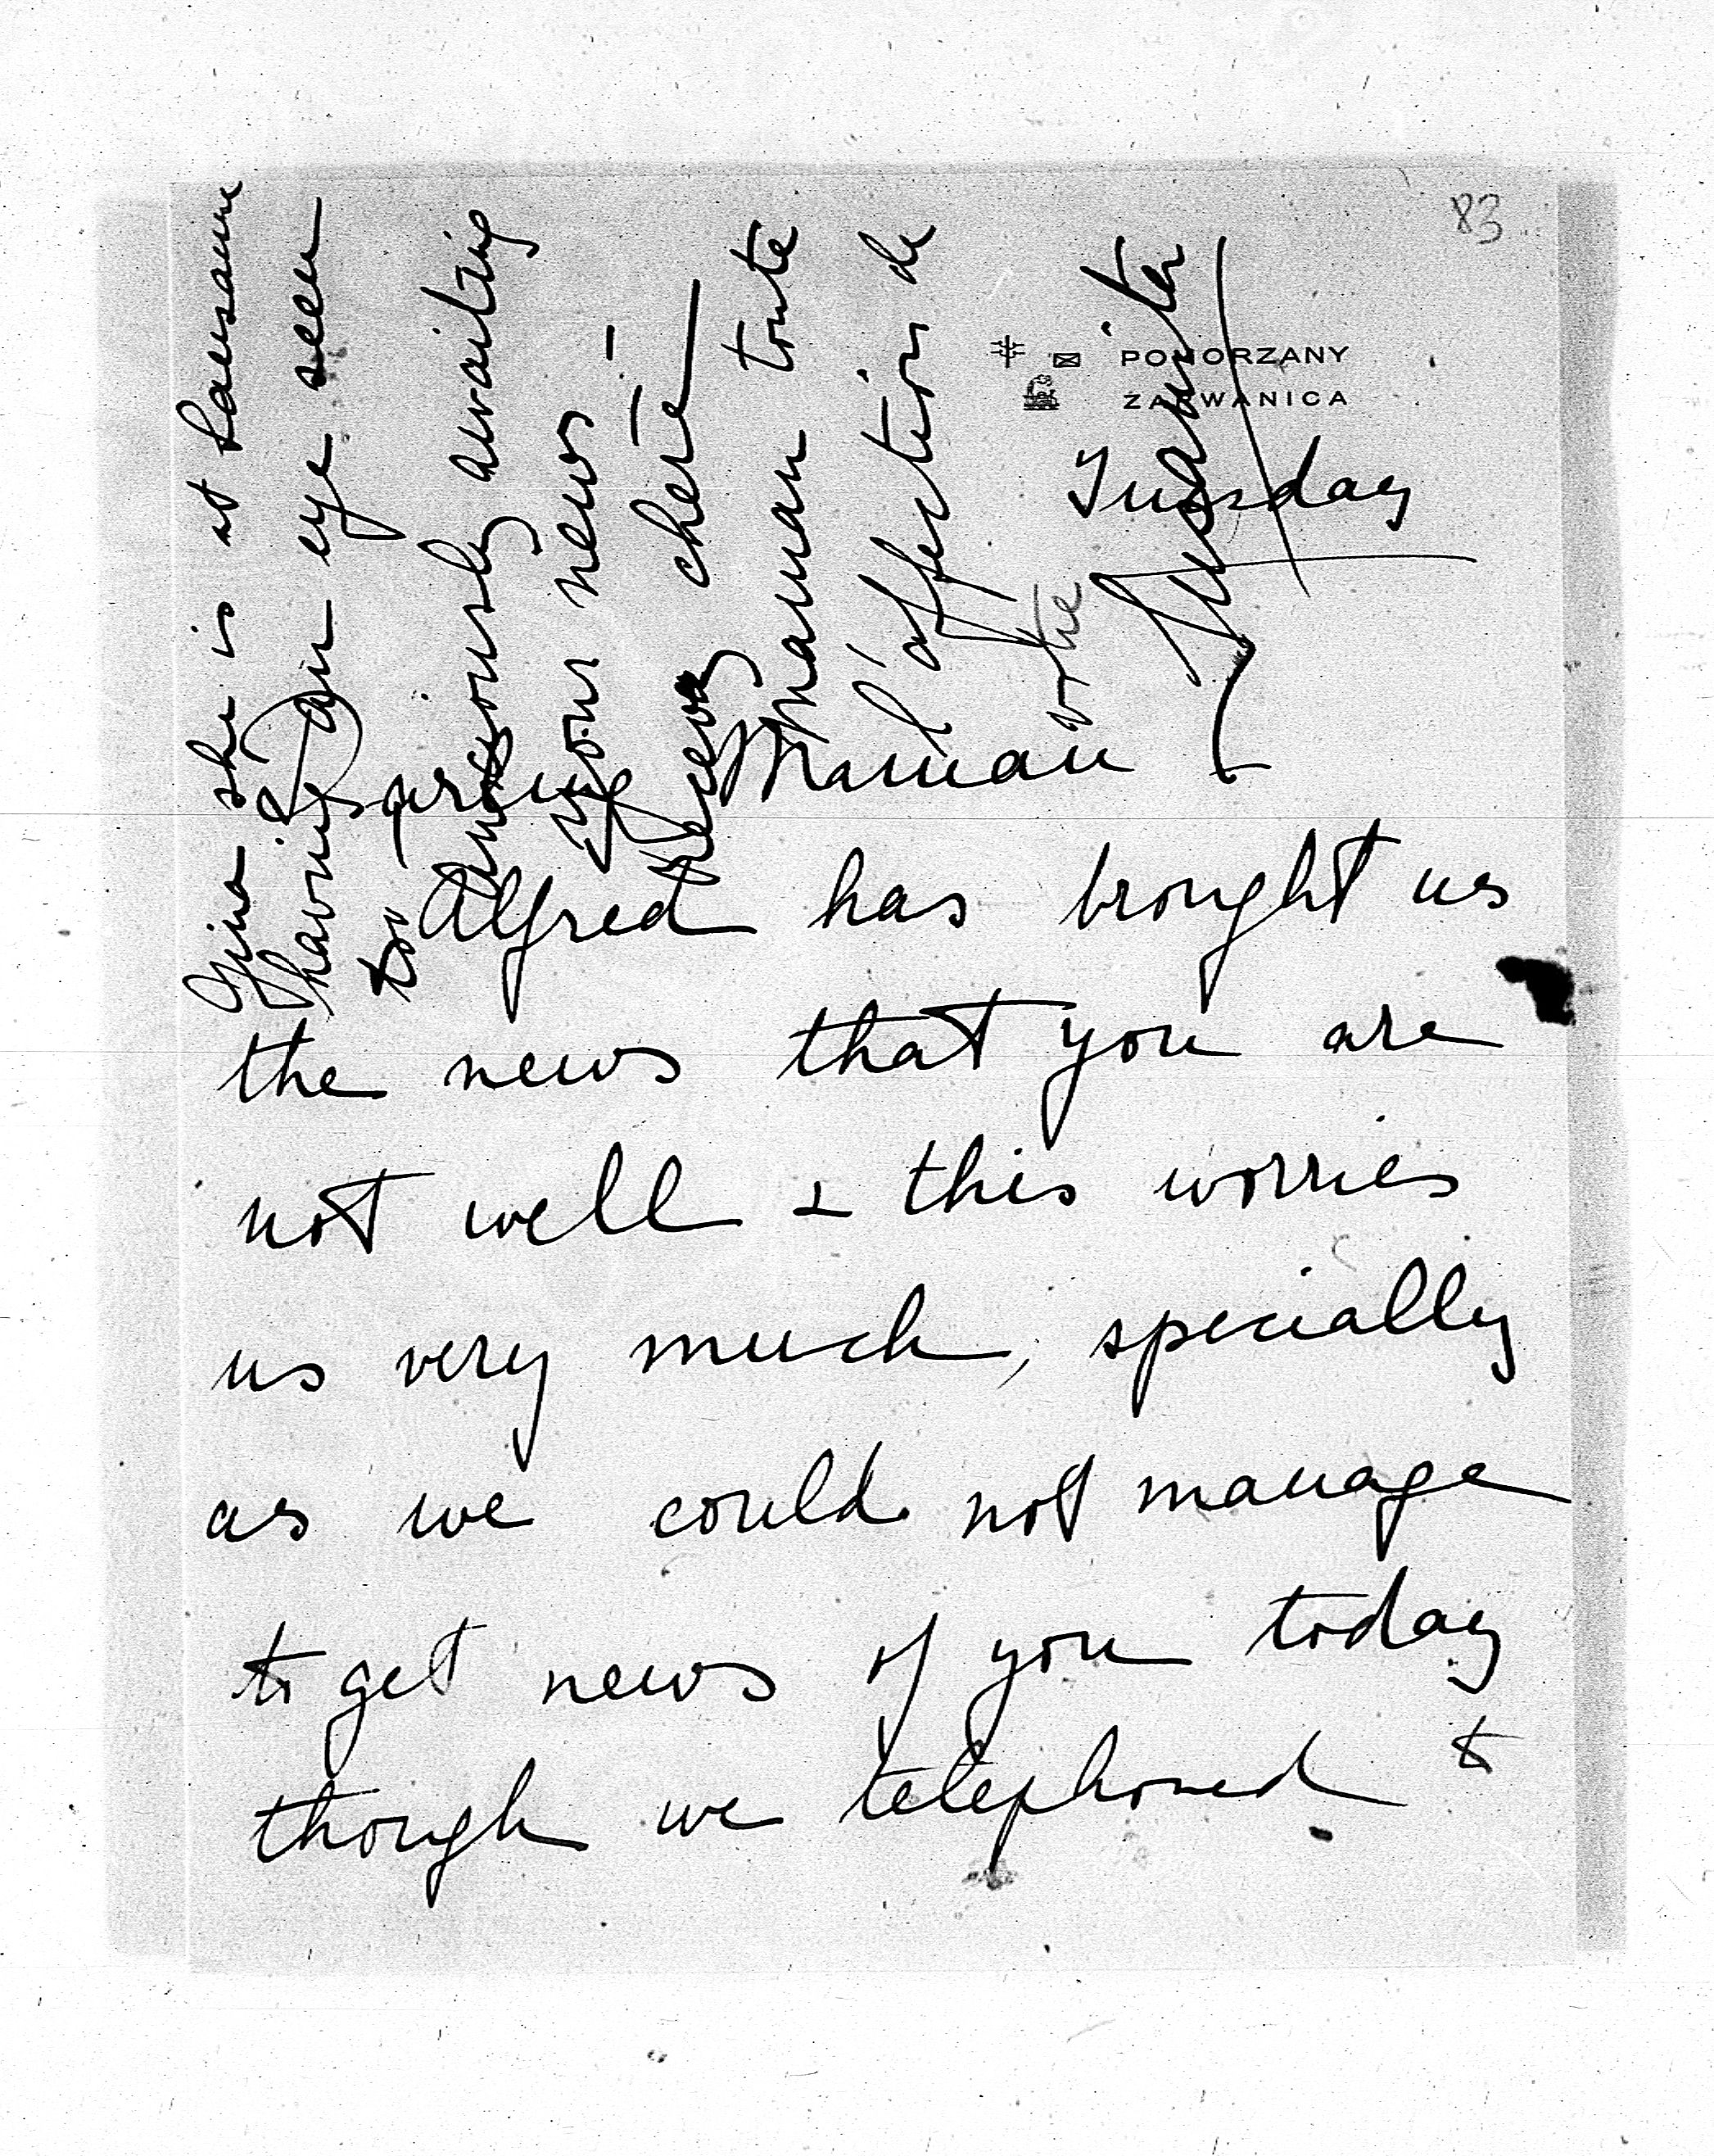 83
POMORZANY
ZARWANICA
Tuesday
Darling Maman
Alfred has brought us
the news that you are
not well & this worries
us very much, specially
as we could not manage
to get news of you today
though we telephoned to
Gina she is at Lausanne
having an eye seen
to
anxiously awaiting
your news –
chère
Maman toute
l'affection de
votre